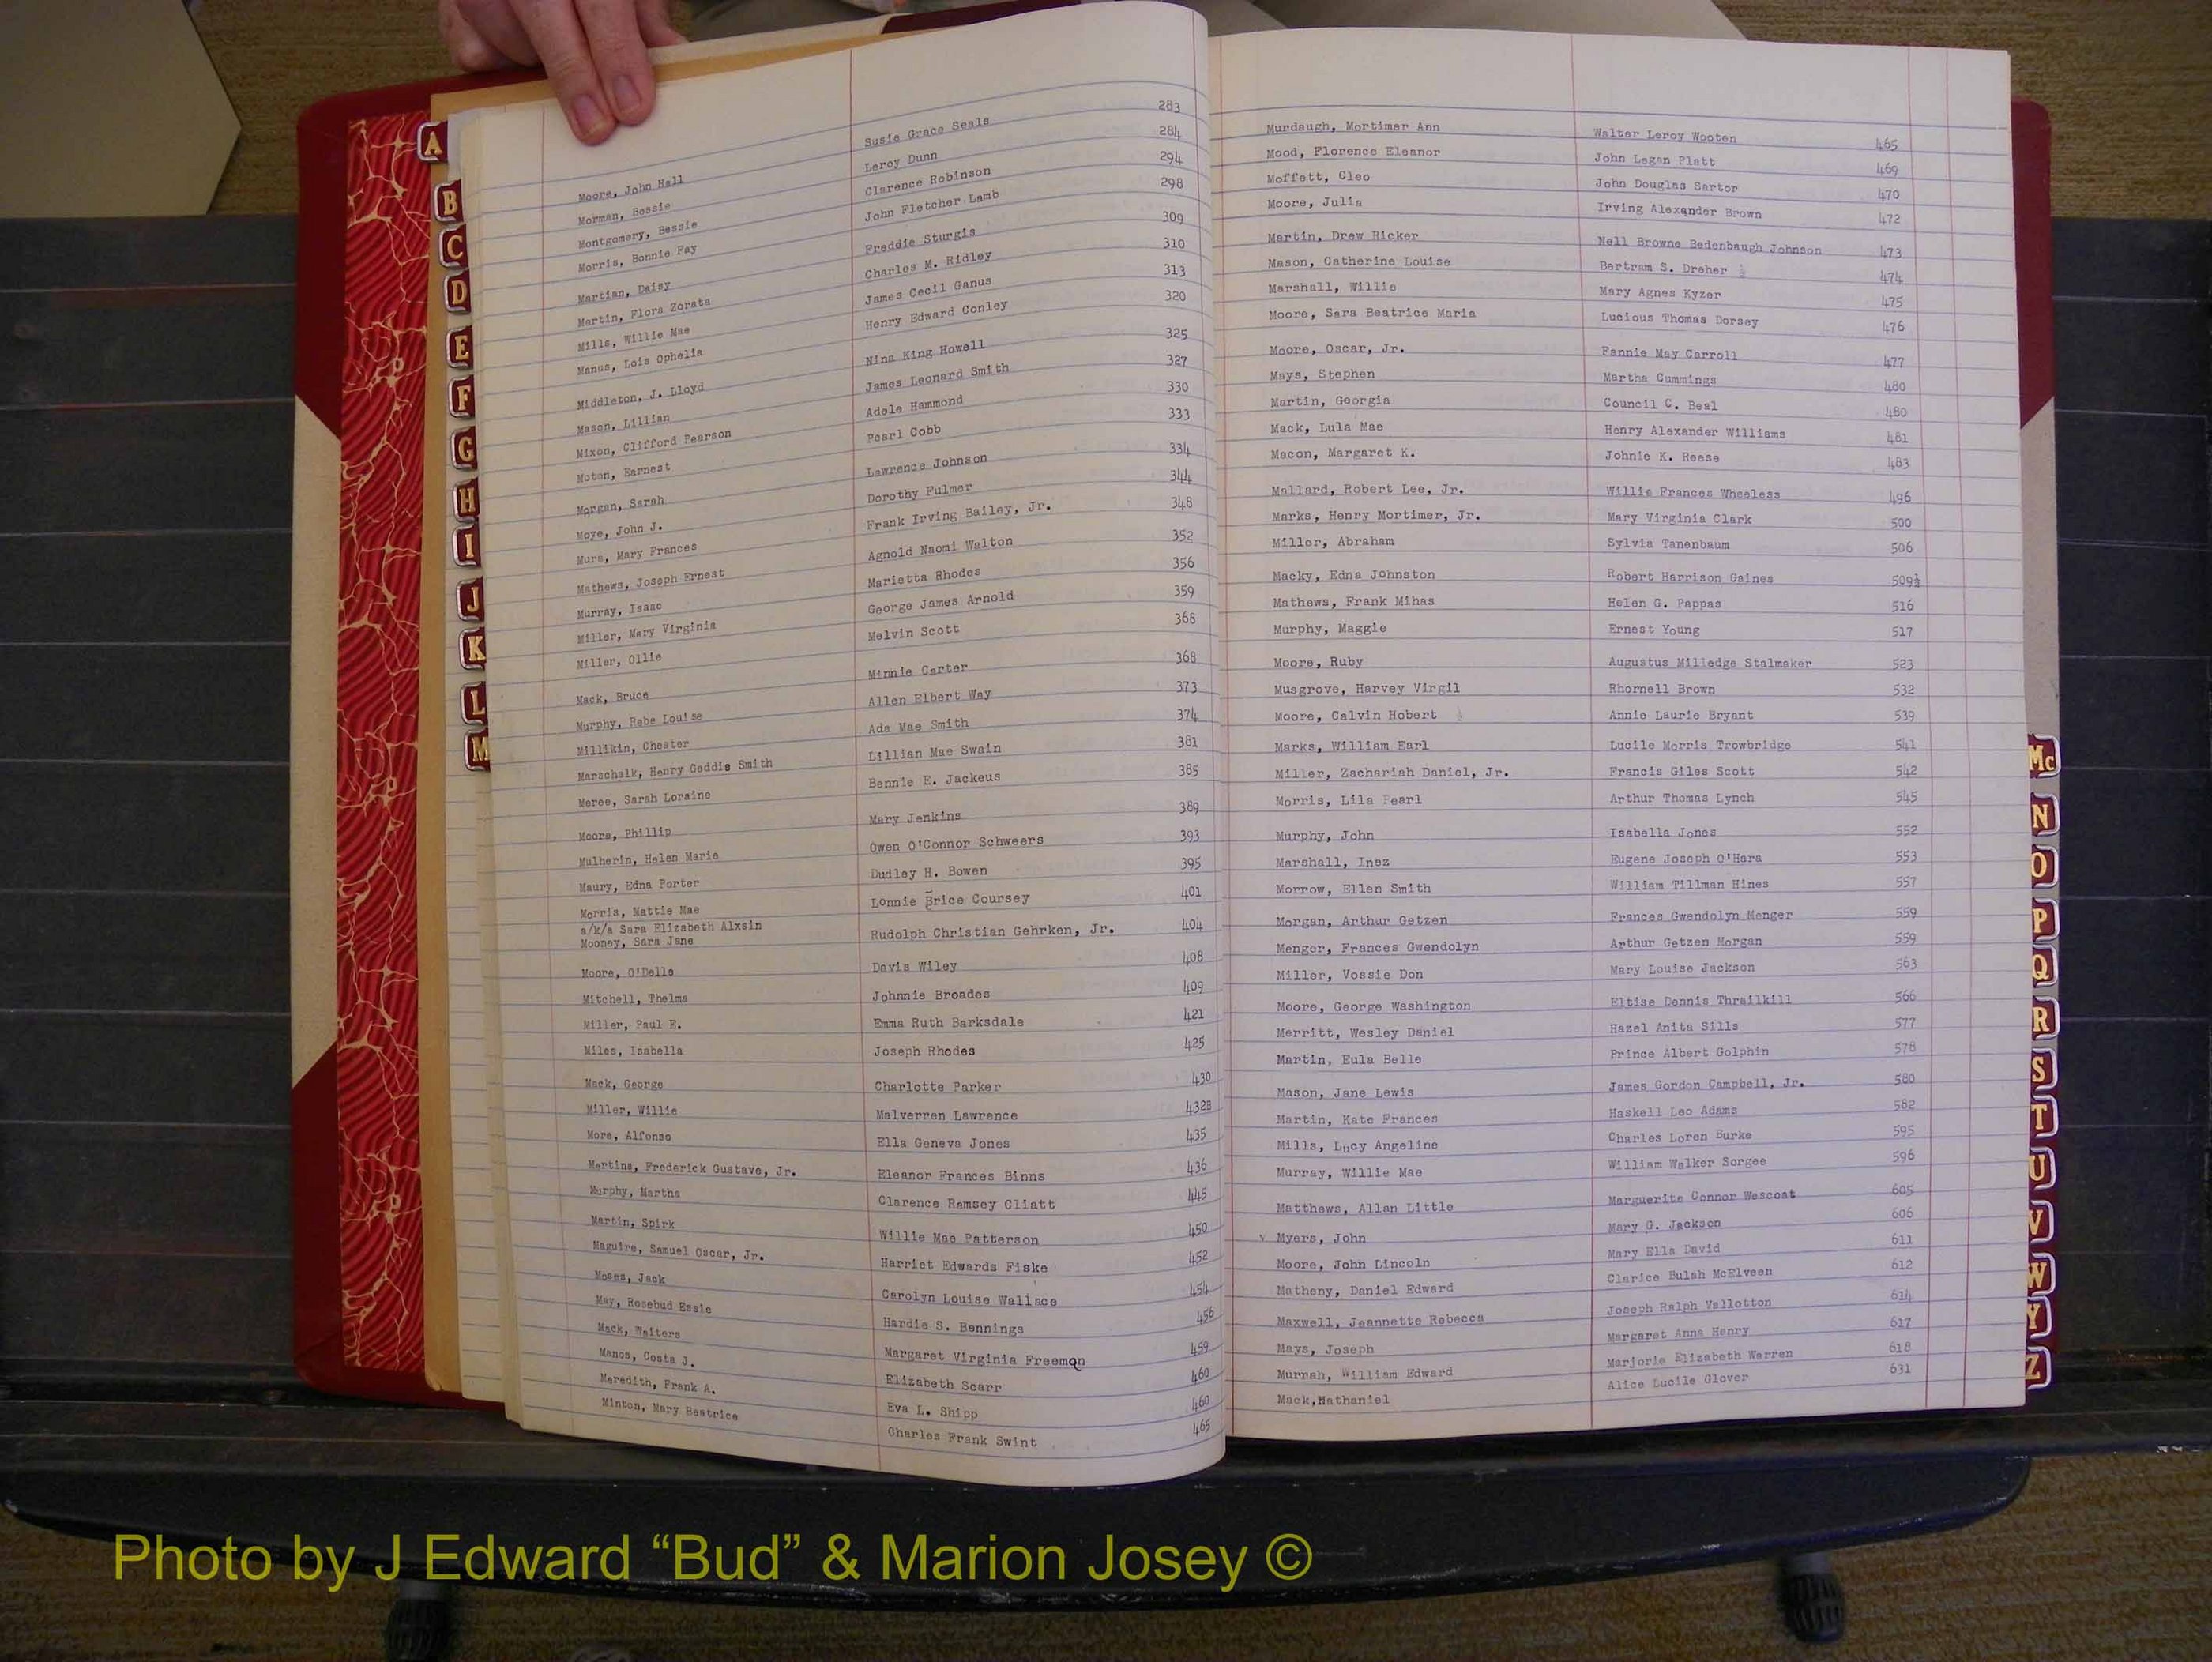 Moore, John Hall Susie Grace Seals 283
Morman, Bessie Leroy Dunn 284
Montgomery, Bessie Clarence Robinson 294
Morris, Bonnie Fay John Fletcher Lamb 298
Martian, Daisy Freddie Sturgis 309
Martin, Flora Zorata Charles M. Ridley 310
Mills, Willie Mae James Cecil Ganus 313
Manus, Lois Ophelia Henry Edward Conley 320
Middleton, J. Lloyd Nina King Howell 325
Mason, Lillian James Leonard Smith 327
Mixon, Clifford Pearson Adele Hammond 330
Moton, Earnest Pearl Cobb 333
Morgan, Sarah Lawrence Johnson 334
Moye, John J. Dorothy Fulmer 344
Mura, Mary Frances Frank Irving Bailey, Jr. 348
Mathews, Joseph Ernest Agnold Naomi Walton 352
Murray, Isaac Marietta Rhodes 356
Miller, Mary Virginia George James Arnold 359
Miller, Ollie Melvin Scott 368
Mack, Bruce Minnie Carter 368
Murphy, Rebe Louise Allen Elbert Way 373
Millikin, Chester Ada Mae Smith 374
Marschalk, Henry Geddis Smith Lillian Mae Swain 381
Meree, Sarah Loraine Bennie E. Jackeus 385
Moore, Phillip Mary Jenkins 389
Mulherin, Helen Marie Owen O'Connor Schweers 393
Maury, Edna Porter Dudley H. Bowen 395
Morris, Mattie Mae Lonnie Brice Coursey 401
a/k/a Sara Elizabeth Alxsin
Mooney, Sara Jane Rudolph Christian Gehrken, Jr. 404
Moore, O'Delle Davis Wiley 408
Mitchell, Thelma Johnnie Broades 409
Miller, Paul E. Emma Ruth Barksdale 421
Miles, Isabella Joseph Rhodes 425
Mack, George Charlotte Parker 430
Miller, Willie Malverren Lawrence 432B
More, Alfonso Ella Geneva Jones 435
Martins, Frederick Gustave, Jr. Eleanor Frances Binns 436
Murphy, Martha Clarence Ramsey Cliatt 445
Martin, Spirk Willie Mae Patterson 450
Maguire, Samuel Oscar, Jr. Harriet Edwards Fiske 452
Moses, Jack Carolyn Louise Wallace 454
May, Rosebud Essie Hardie S. Bennings 456
Mack, Walters Margaret Virginia Freeman 459
Manos, Costa J. Elizabeth Scarr 460
Meredith, Frank A. Eva L. Shipp 460
Minton, Mary Beatrice Charles Frank Swint 465
Murdaugh, Mortimer Ann Walter Leroy Wooten 465
Mood, Florence Eleanor John Logan Platt 469
Moffett, Cleo John Douglas Sartor 470
Moore, Julia Irving Alexander Brown 472
Martin, Drew Ricker Nell Browne Bedenbaugh Johnson 473
Mason, Catherine Louise Bertram S. Dreher 474
Marshall, Willie Mary Agnes Kyzer 475
Moore, Sara Beatrice Maria Lucious Thomas Dorsey 476
Moore, Oscar, Jr. Fannie May Carroll 477
Mays, Stephen Martha Cummings 480
Martin, Georgia Council C. Beal 480
Mack, Lula Mae Henry Alexander Williams 481
Macon, Margaret K. Johnie K. Reese 483
Mallard, Robert Lee, Jr. Willie Frances Wheeless 496
Marks, Henry Mortimer, Jr. Mary Virginia Clark 500
Miller, Abraham Sylvia Tanenbaum 506
Macky, Edna Johnston Robert Harrison Gaines 509½
Mathews, Frank Mihas Helen G. Pappas 516
Murphy, Maggie Ernest Young 517
Moore, Ruby Augustus Milledge Stalmaker 523
Musgrove, Harvey Virgil Rhornell Brown 532
Moore, Calvin Hobert Annie Laurie Bryant 539
Marks, William Earl Lucile Morris Trowbridge 541
Miller, Zachariah Daniel, Jr. Francis Giles Scott 542
Morris, Lila Pearl Arthur Thomas Lynch 545
Murphy, John Isabella Jones 552
Marshall, Inez Eugene Joseph O'Hara 553
Morrow, Ellen Smith William Tillman Hines 557
Morgan, Arthur Getzen Frances Gwendolyn Menger 559
Menger, Frances Gwendolyn Arthur Getzen Morgan 559
Miller, Vossie Don Mary Louise Jackson 563
Moore, George Washington Eltise Dennis Thrailkill 566
Merritt, Wesley Daniel Hazel Anita Sills 577
Martin, Eula Belle Prince Albert Golphin 578
Mason, Jane Lewis James Gordon Campbell, Jr. 580
Martin, Kate Frances Haskell Leo Adams 582
Mills, Lucy Angeline Charles Loren Burke 595
Murray, Willie Mae William Walker Sorgee 596
Matthews, Allan Little Marguerite Connor Wescoat 605
Myers, John Mary G. Jackson 606
Moore, John Lincoln Mary Ella David 611
Matheny, Daniel Edward Clarice Bulah McElveen 612
Maxwell, Jeannette Rebecca Joseph Ralph Vallotton 614
Mays, Joseph Margaret Anna Henry 617
Murrah, William Edward Marjorie Elizabeth Warren 618
Mack, Nathaniel Alice Lucile Glover 631
A
B
C
D
E
F
G
H
I
J
K
L
M
Mc
N
O
P
Q
R
S
T
U
V
W
Y
Z
Photo by J Edward “Bud” & Marion Josey ©